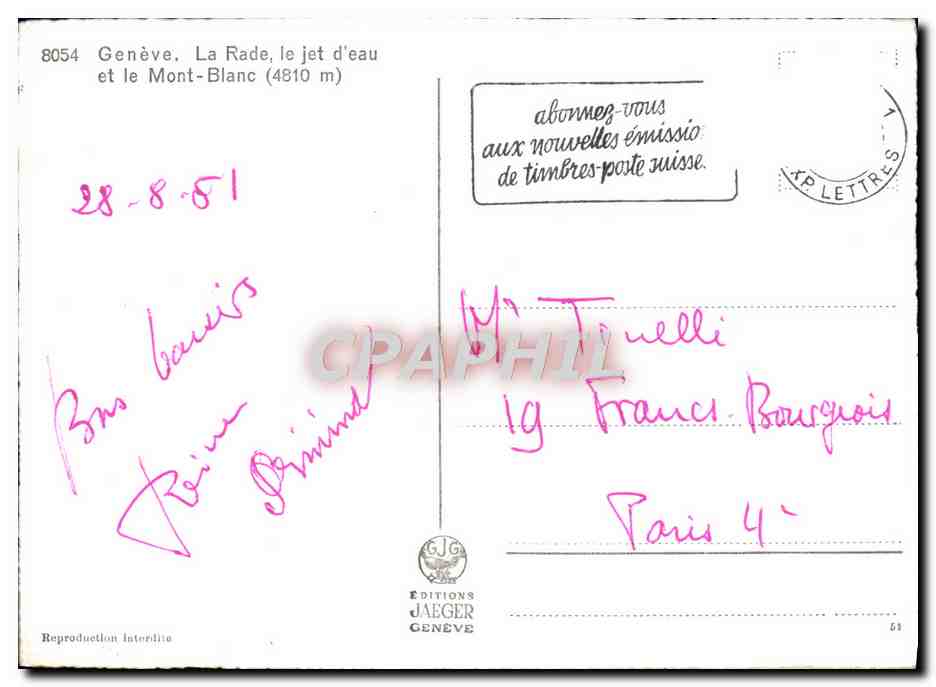 8054 Genève. La Rade, le jet d'eau
et le Mont-Blanc (4810 m)
abonnez-vous
aux nouvelles émissio
de timbres-poste suisse.
XP. LETTRES
28-8-61
Bons baisers
Reine
CPAPHIL
Tonelli
19 Francs-Bourgeois
Paris 4
GJG
ÉDITIONS
JAEGER
GENÈVE
Reproduction interdite